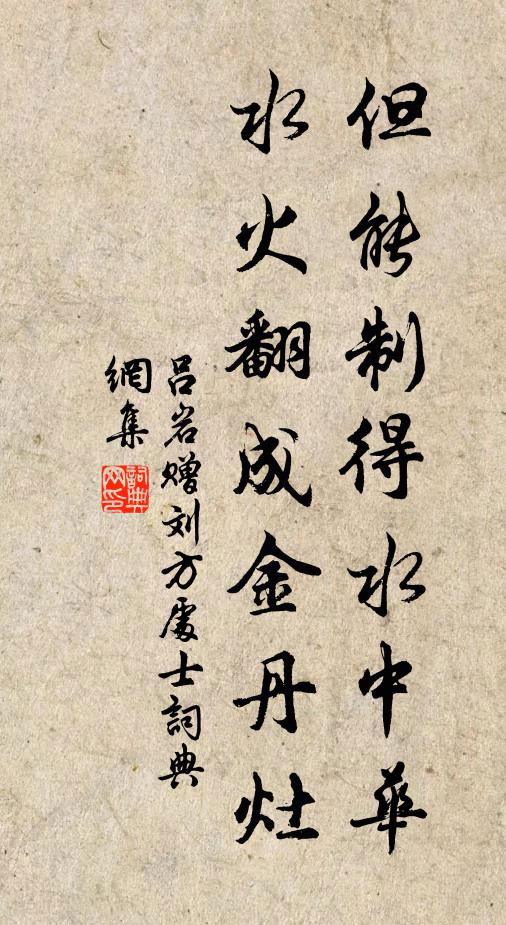 但能制得水中華
水火翻成金丹灶
吕岩赠刘方處士詞典
網集
詞典
网印